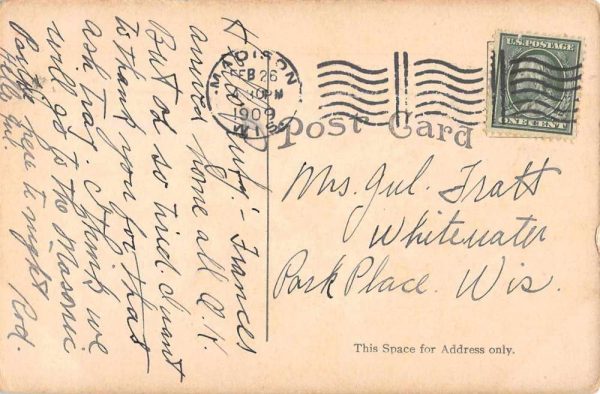 MADISON
FEB 26
PM
1909
WIS
U.S. POSTAGE
ONE CENT
Post Card
Mrs. Jul. Tratt
Whitewater
Park Place. Wis.
This Space for Address only.
Frances
arrived home all O.K.
But oh so tired. I want
to thank you for that
ash tray. I think we
will go to the Masonic
Party here to night Rod.
Hello Jul.